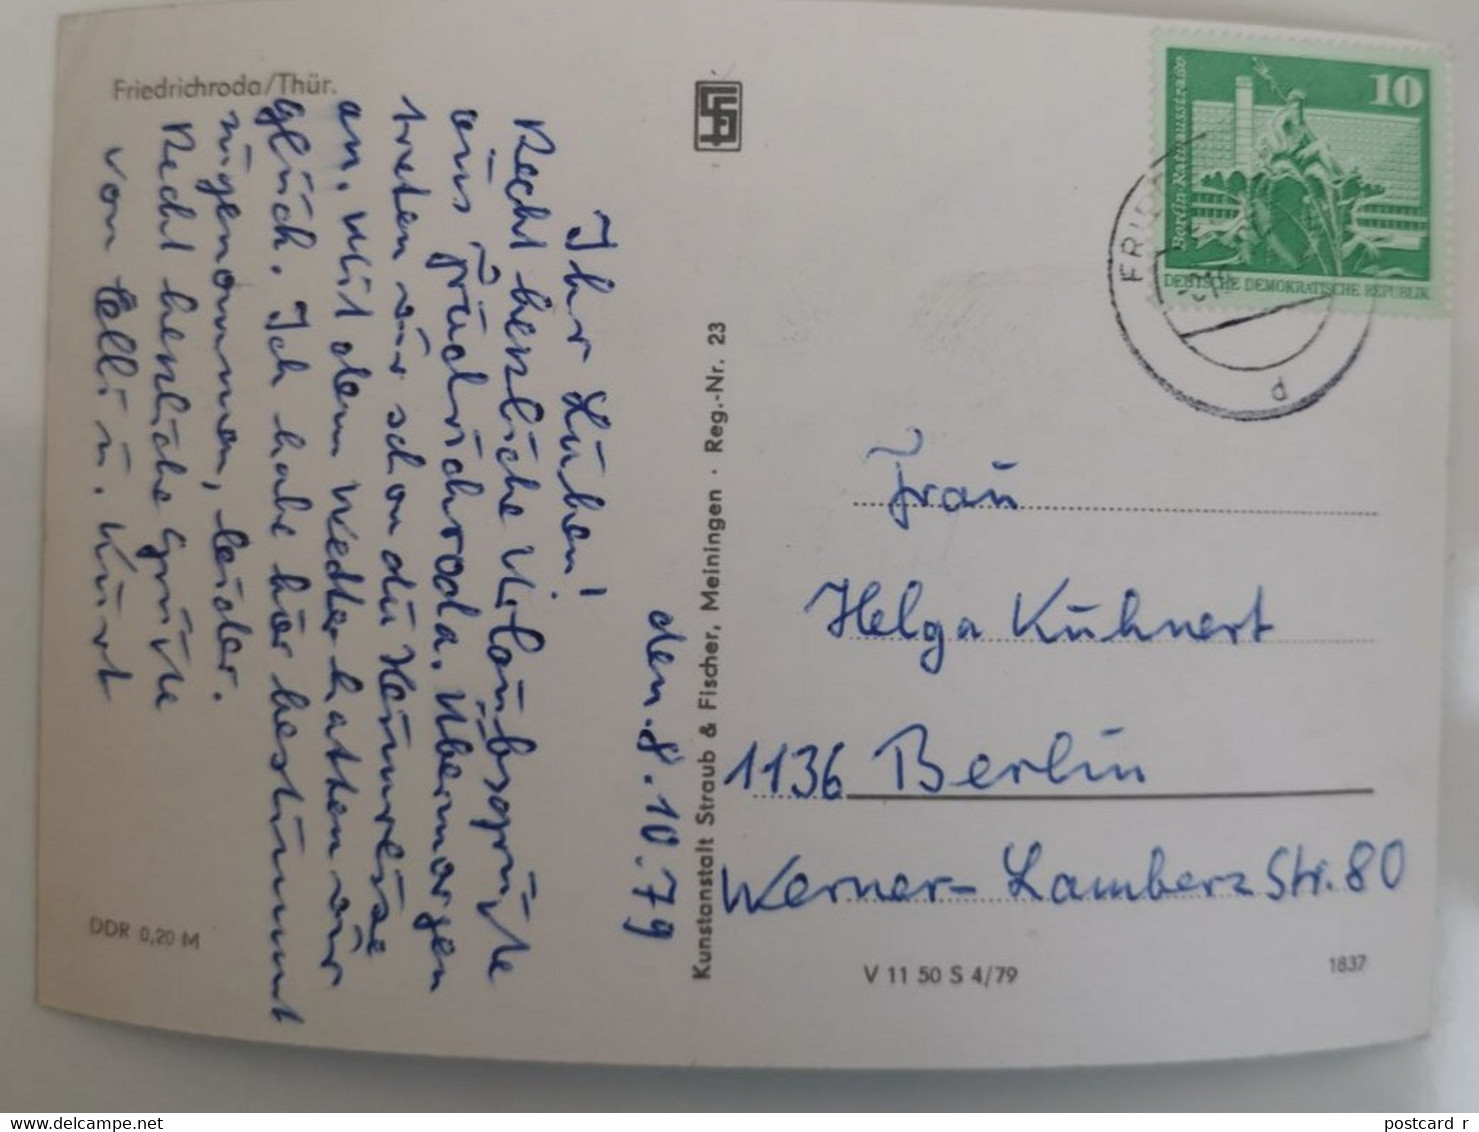 Friedrichroda/Thür.
den 8.10.79
Ihr Lieben!
Recht herzliche Urlaubsgrüße
aus Friedrichroda. Übermorgen
treten wir schon die Heimreise
an. Mit dem Wetter hatten wir
Glück. Ich habe hier bestimmt
zugenommen, leider.
Recht herzliche Grüße
von Elli u. Kurt
DDR 0,20 M
Kunstanstalt Straub & Fischer, Meiningen · Reg.-Nr. 23
10
Berlin-Rathausstraße
DEUTSCHE DEMOKRATISCHE REPUBLIK
d
Frau
Helga Kuhnert
1136 Berlin
Werner-Lamberz Str. 80
V 11 50 S 4/79
1837
www.delcampe.net
postcard r